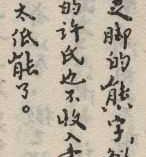 脚的熊字,
的许氏也不收入
太低能了。